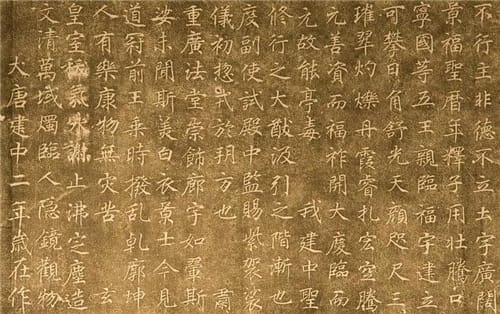 不行主非德不立土宇廣闊
景福聖曆年釋子用壯騰口
寧國等五王親臨福宇建立
可攀日角舒光天顏咫尺三
璀翠灼爍丹霞睿札宏空騰
元善資而福祚開大慶臨而
元故能亭毒 我建中聖
修行之大猷汲引之階漸也
度副使試殿中監賜紫袈裟
儀初惣戎於朔方也 肅
重廣法堂崇飾廊宇如翬斯
娑未聞斯美白衣景士今見
道冠前王乘時撥乱乹廓坤
人有樂康物無灾苦 玄
皇室祲氛永謝止沸定塵造
文清萬域燭臨人隱鏡觀物
大唐建中二年歲在作